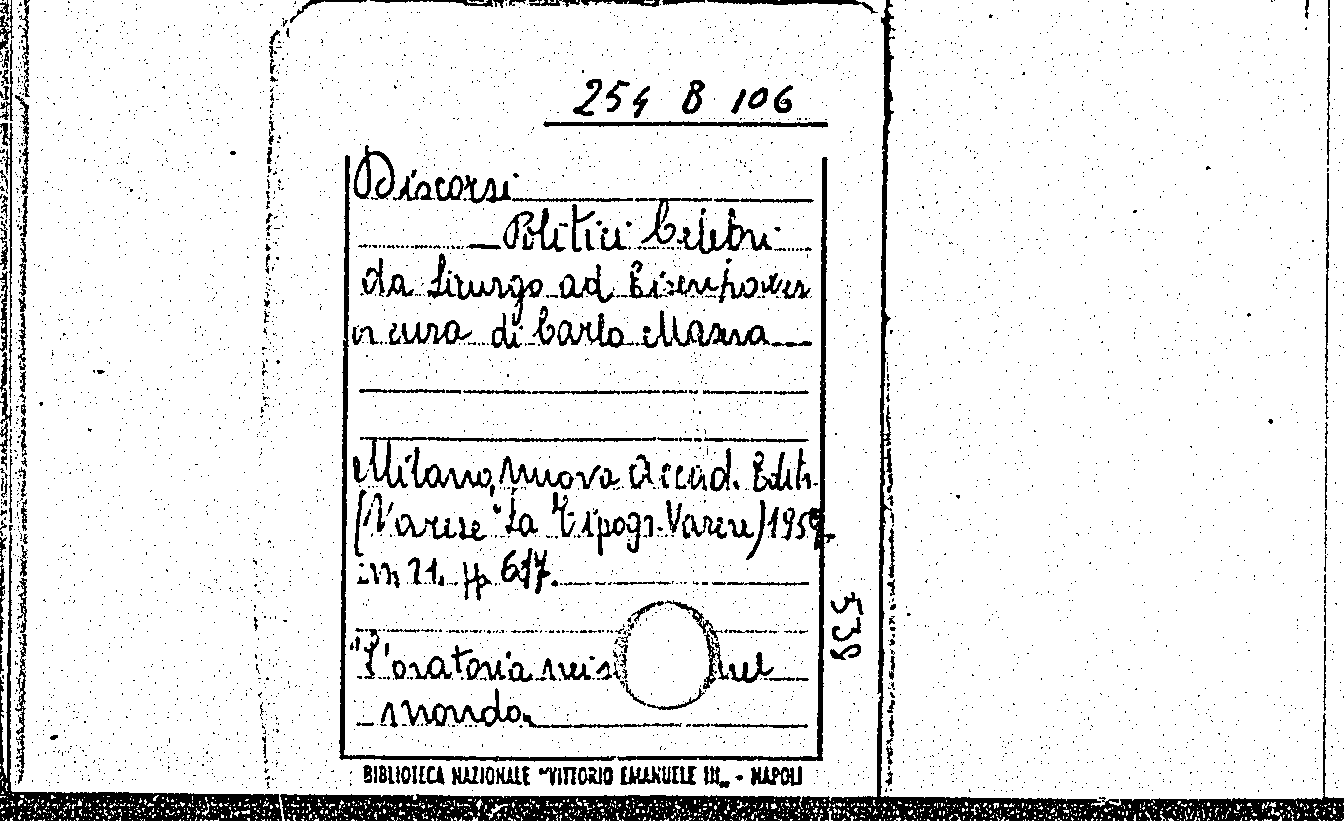 254 B 106
Discorsi
Politici Celebri
da Licurgo ad Eisenhower
a cura di Carlo Massa
Milano, Nuova Accad. Editr.
(Varese "La Tipogr. Varese) 1959.
in 21. pp 617.
"L'oratoria nei nel
mondo„
539
BIBLIOTECA NAZIONALE "VITTORIO EMANUELE III„ - NAPOLI